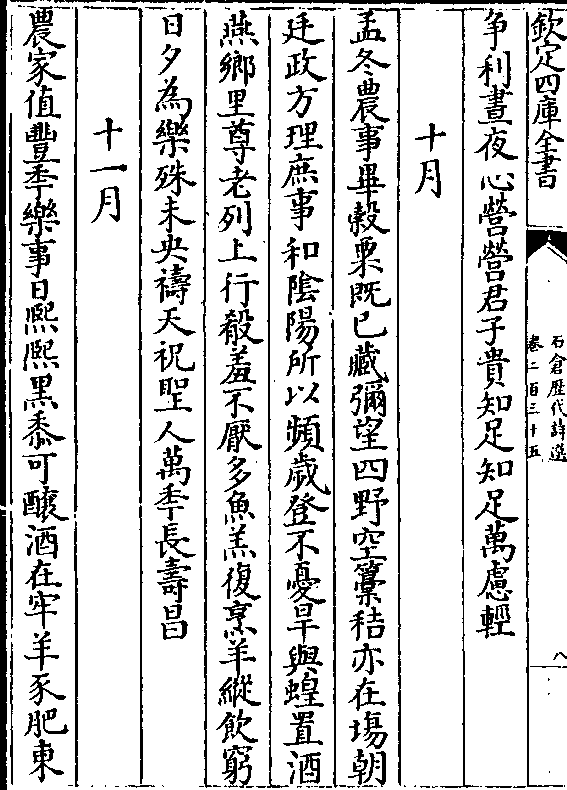 欽定四庫全書
石倉歷代詩選
卷二百三十五
八
争利晝夜心營營君子貴知足知足萬慮輕
十月
孟冬農事畢糓粟既已藏彌望四野空藁秸亦在塲朝
廷政方理庶事和陰陽所以頻歲登不憂旱與蝗置酒
燕鄉里尊老列上行殽羞不厭多魚羔復烹羊縱飲窮
日夕為樂殊未央禱天祝聖人萬秊長壽昌
十一月
農家值豐秊樂事日熙熙黑黍可釀酒在牢羊豕肥東